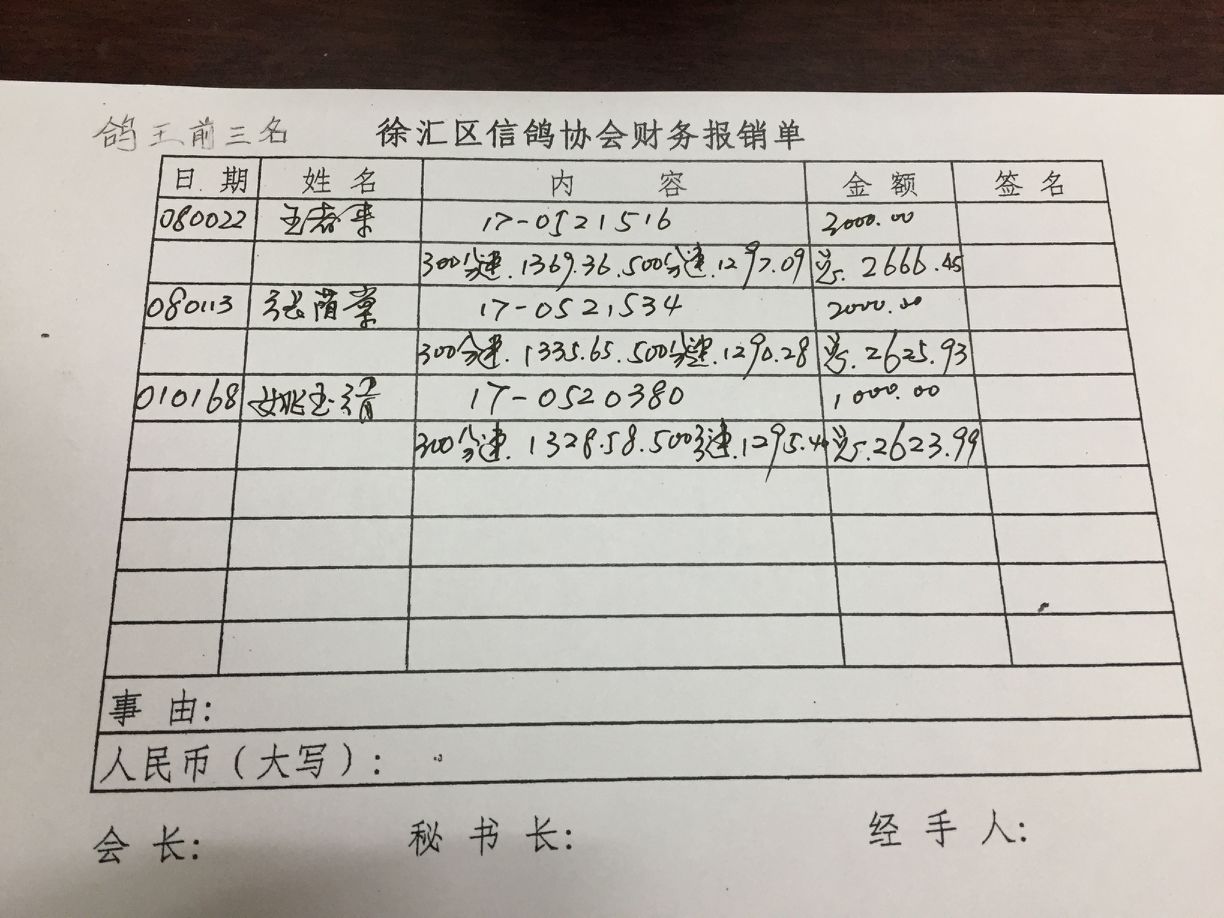 鸽王前三名 徐汇区信鸽协会财务报销单
日期 姓名 内容 金额 签名
080022 王春来 17-0521516 3000.00
300分速.1369.36.500分速.1297.09 总.2666.45
080113 张荫棠 17-0521534 2000.00
300分速.1335.65.500分速.1290.28 总.2625.93
010168 姚玉清 17-0520380 1000.00
300分速.1328.58.500分速.1295.4 总.2623.99
事由:
人民币(大写):
会长: 秘书长: 经手人: